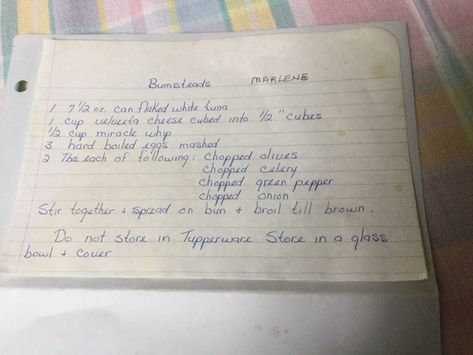 Bumsteads MARLENE
1 7 1/2 oz. can flaked white tuna
1 cup velveeta cheese cubed into 1/2" cubes
1/2 cup miracle whip
3 hard boiled eggs mashed
2 Tbs. each of following: chopped olives
chopped celery
chopped green pepper
chopped onion
Stir together + spread on bun + broil till brown.
Do not store in Tupperware Store in a glass
bowl + cover